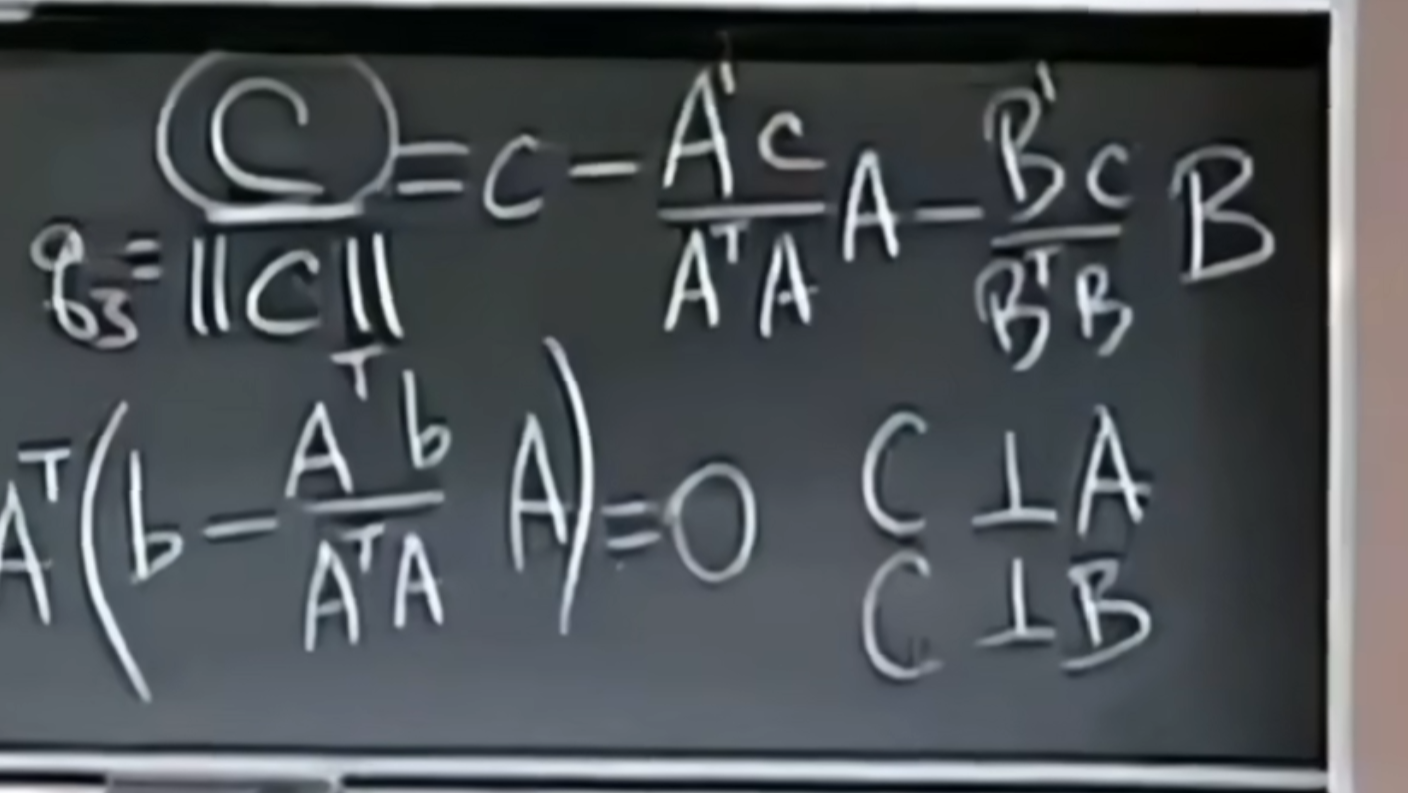 q₃ = C/||C|| = c − (Aᵀc/AᵀA) A − (Bᵀc/BᵀB) B
Aᵀ(b − (Aᵀb/AᵀA) A) = 0   C ⊥ A
C ⊥ B